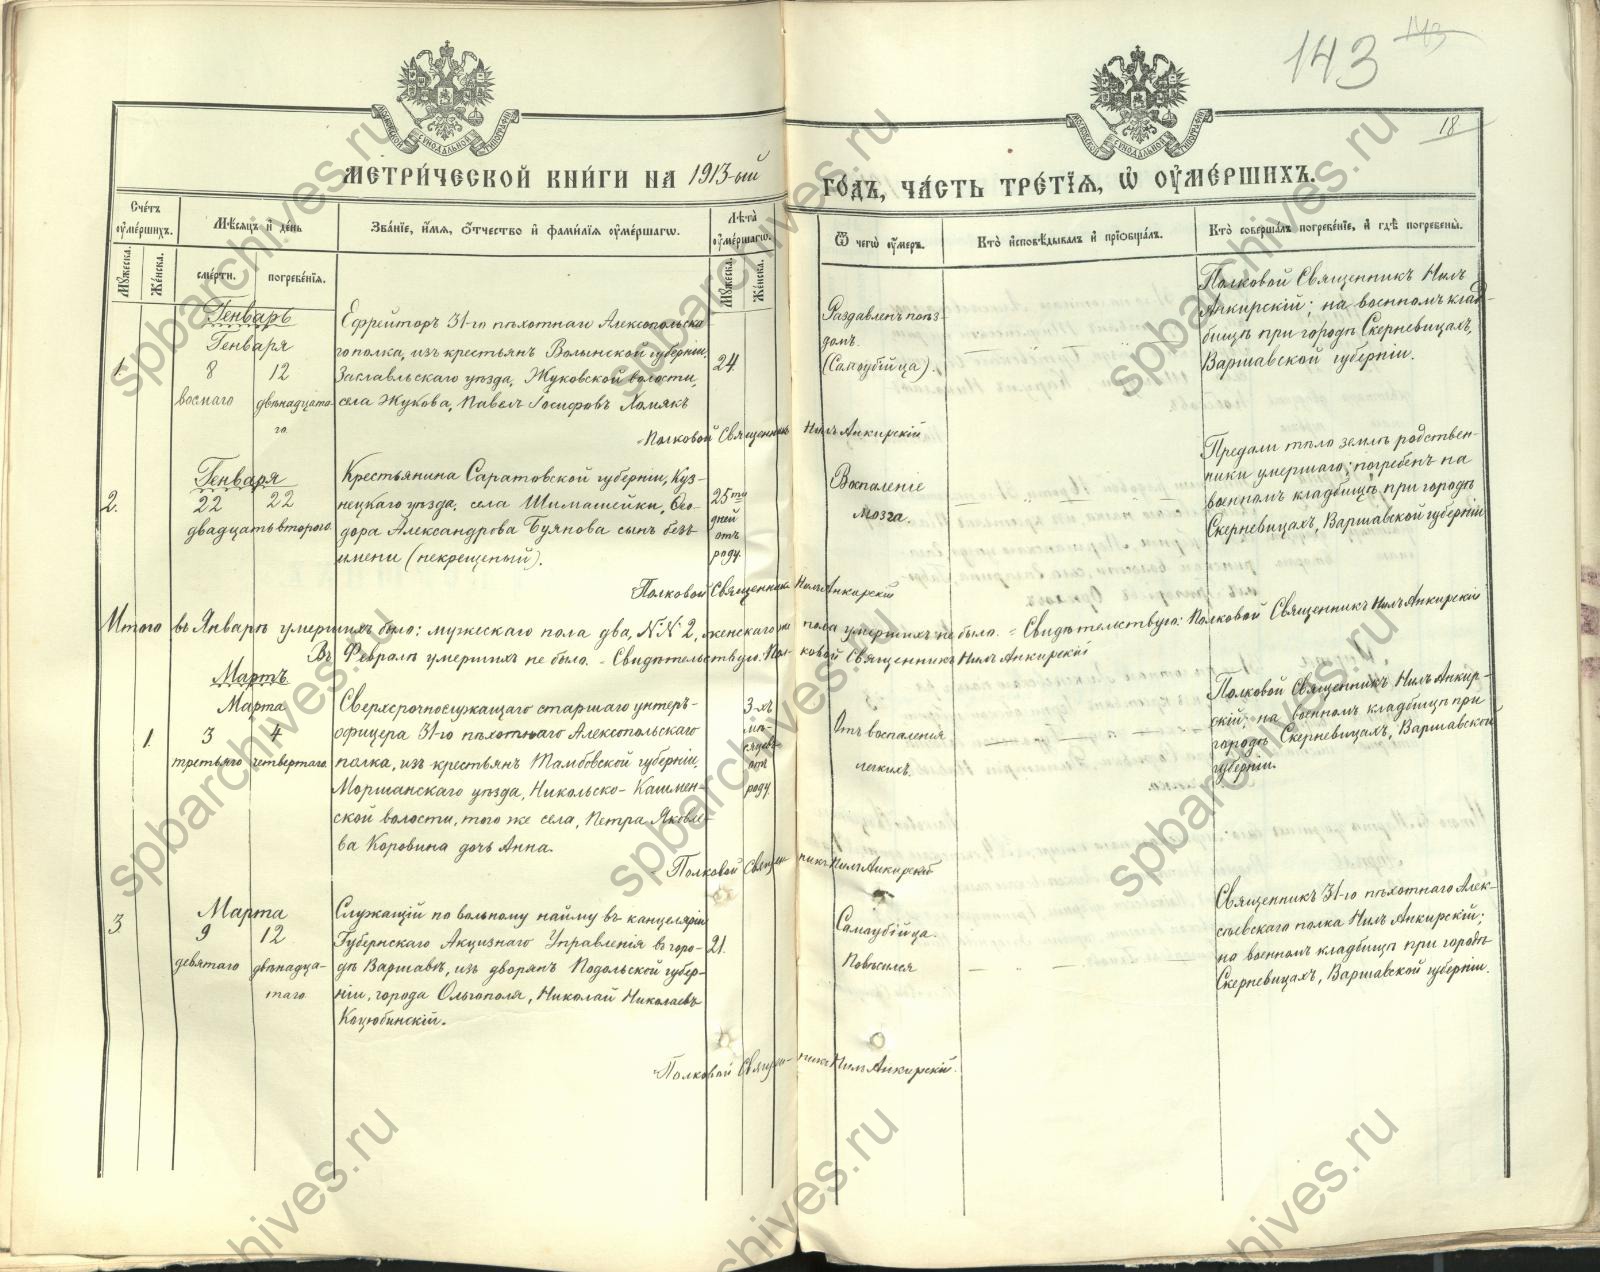 143
143
18
МОСКОВСКОЙ СѴНОДАЛЬНОЙ ТИПОГРАФІИ
МОСКОВСКОЙ СѴНОДАЛЬНОЙ ТИПОГРАФІИ
МЕТРИ́ЧЕСКОЙ КНИ́ГИ НА 1913-ый ГО́ДЪ, ЧА́СТЬ ТРЕ́ТІЯ, Ѡ ОУ҆МЕ́РШИХЪ.
Сче́тъ оу҆ме́ршихъ.
Му́жеска.
Же́нска.
Мѣ́сяцъ и҆ де́нь
сме́рти.
погребе́нія.
Зва́ніе, и҆́мя, ѻ҆́тчество и҆ фами́лія оу҆ме́ршагѡ.
Лѣ́та оу҆ме́ршагѡ.
Му́жеска.
Же́нска.
Ѿ чегѡ̀ оу҆́меръ.
Кто̀ и҆сповѣ́дывалъ и҆ прїѡбща́лъ.
Кто̀ соверша́лъ погребе́ніе, и҆ гдѣ̀ погребены̀.
Генварь
Генваря
1.
8
12
восмаго
двѣнадцато-
го.
Ефрейторъ 31-го пѣхотнаго Алексопольска-
го полка, изъ крестьянъ Волынской губерніи,
Заславльскаго уѣзда, Жуковской волости,
села Жукова, Павелъ Іосифовъ Хомякъ
24
Раздавленъ поѣз-
домъ.
(Самоубійца).
Полковой Священникъ Нилъ
Анкирскій; на военномъ клад-
бищѣ при городѣ Скерневицахъ,
Варшавской губерніи.
Полковой Священникъ Нилъ Анкирскій
Генваря
2.
22
22
двадцать второго.
Крестьянина Саратовской губерніи, Куз-
нецкаго уѣзда, села Шимашейки, Ѳео-
дора Александрова Буянова сынъ безъ
имени (некрещеный).
25ти
дней
отъ
роду.
Воспаленіе
мозга.
Предали тѣло землѣ родствен-
ники умершаго; погребенъ на
военномъ кладбищѣ при городѣ
Скерневицахъ, Варшавской губерніи
Полковой Священникъ Нилъ Анкирскій
Итого въ Январѣ умершихъ было: мужескаго пола два, №№ 2, женскаго же пола умершихъ не было. - Свидѣтельствую: Полковой Священникъ Нилъ Анкирскій
Въ Февралѣ умершихъ не было. - Свидѣтельствую: Полковой Священникъ Нилъ Анкирскій
Мартъ
Марта
1.
3
4
третьяго
четвертаго.
Сверхсрочнослужащаго старшаго унтеръ-
офицера 31-го пѣхотнаго Алексопольскаго
полка, изъ крестьянъ Тамбовской губерніи,
Моршанскаго уѣзда, Никольско-Кашмен-
ской волости, того же села, Петра Яковле-
ва Коровина дочь Анна.
3-хъ
мѣ-
сяцевъ
отъ
роду.
Отъ воспаленія
легкихъ.
Полковой Священникъ Нилъ Анкир-
скій; на военномъ кладбищѣ при
городѣ Скерневицахъ, Варшавской
губерніи.
Полковой Священникъ Нилъ Анкирскій
Марта
3.
9
12
девятаго
двѣнадца-
таго.
Служащій по вольному найму въ канцеляріи
Губернскаго Акцизнаго Управленія въ горо-
дѣ Варшавѣ, изъ дворянъ Подольской губер-
ніи, города Ольгополя, Николай Николаевъ
Коцюбинскій.
21.
Самоубійца.
Повѣсился
Священникъ 31-го пѣхотнаго Алек-
сѣевскаго полка Нилъ Анкирскій;
на военномъ кладбищѣ при городѣ
Скерневицахъ, Варшавской губерніи.
Полковой Священникъ Нилъ Анкирскій.
spbarchives.ru
spbarchives.ru
spbarchives.ru
spbarchives.ru
spbarchives.ru
spbarchives.ru
spbarchives.ru
spbarchives.ru
spbarchives.ru